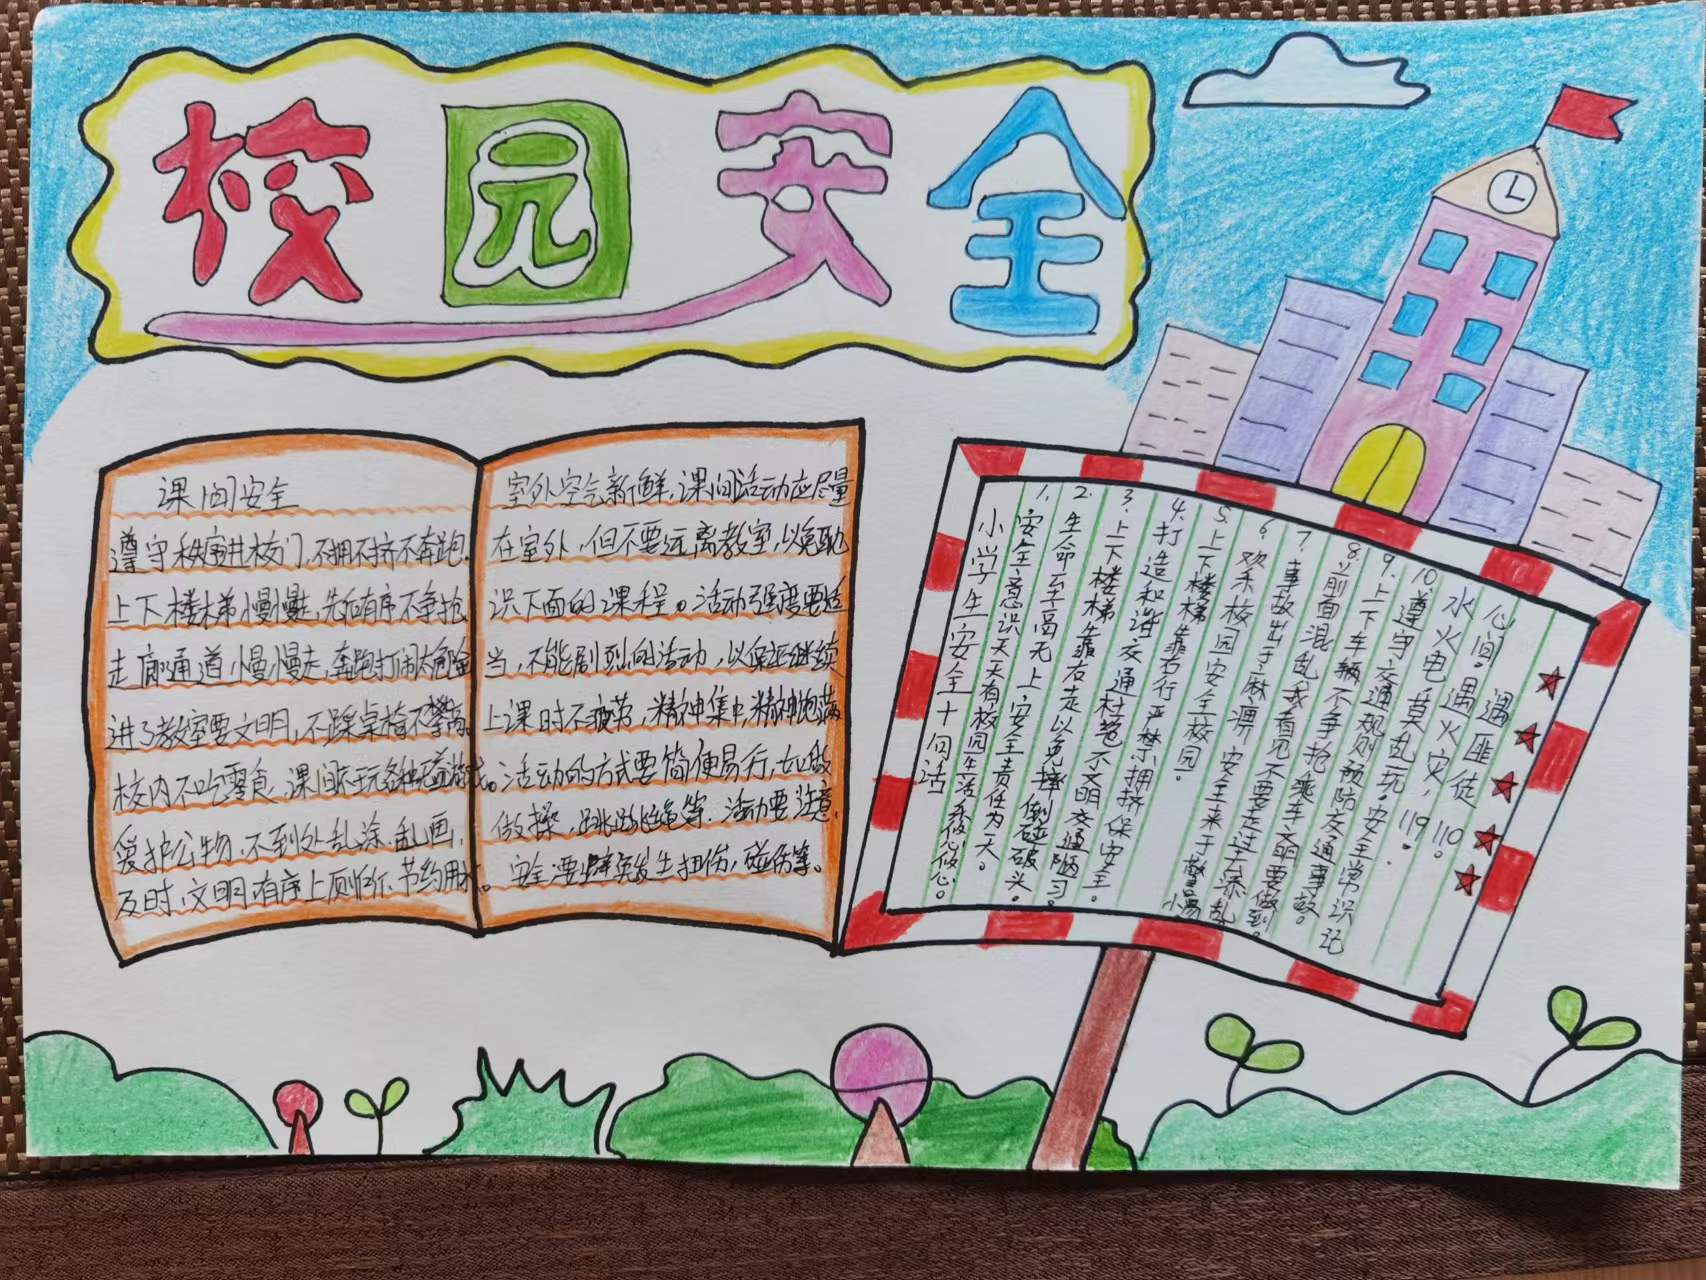 校园安全
课间安全
遵守秩序进校门,不拥不挤不奔跑.
上下楼梯慢慢走,先后有序不争抢
走廊通道慢慢走,奔跑打闹太危险
进了教室要文明,不踩桌椅不攀高.
校内不吃零食,课间不玩各种游戏。
爱护公物,不到处乱涂乱画,
及时,文明,有序上厕所,节约用水。
室外空气新鲜,课间活动应尽量
在室外,但不要远离教室,以免耽
误下面的课程。活动强度要适
当,不能剧烈的活动,以保证继续
上课时不疲劳,精神集中,精神饱满
。活动的方式要简便易行,如做
做操,跳跳绳等.活动要注意
安全,要避免发生扭伤,碰伤等。
小学生安全十句话
1.安全意识天天有校园生活系你心。
2.生命至高无上,安全责任为天。
3.上下楼梯靠右走以免撞倒碰破头。
4.打造和谐交通杜绝不文明交通陋习。
5.上下楼梯靠右行严禁拥挤保安全。
6.欢乐校园安全校园。
7.事故出于麻痹,安全来于警惕
8.前面混乱我看见不要去添乱
9.上下车辆不争抢乘车文明要做到。
10.遵守交通规则预防交通事故。
水火电莫乱玩。安全常识记
心间。遇火灾,119。
遇匪徒110。